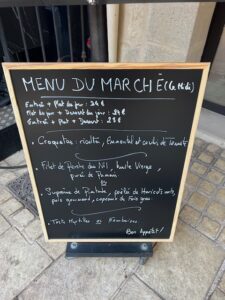 MENU DU MARCHÉ (Le Midi)
Entrée + Plat du jour : 24 €
Plat du jour + Dessert du jour : 24 €
Entrée + Plat + Dessert : 28 €
Croquettes risotto, Emmental et coulis de Tomate
Filet de Perche du Nil, huile Vierge,
purée de Panais
Suprême de Pintade, poêlée de Haricots verts,
pois gourmand, copeaux de Foie gras
Tarte Myrtilles ou Framboises
Bon Appétit !